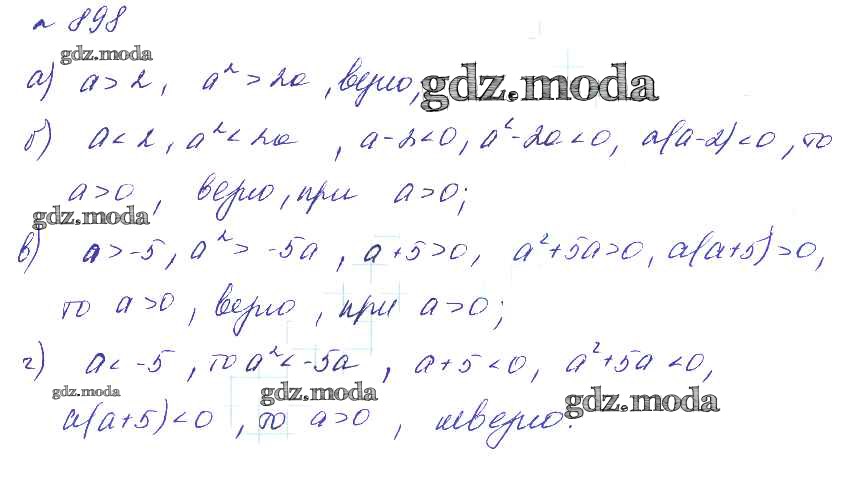 № 898
gdz.moda
а) a > 2, a² > 2a, верно, gdz.moda
б) a < 2, a² < 2a, a-2<0, a²-2a<0, a(a-2)<0, то
a>0, верно, при a>0;
gdz.moda
в) a>-5, a²> -5a, a+5>0, a²+5a>0, a(a+5)>0,
то a>0, верно, при a>0;
г) a< -5, то a²<-5a, a+5<0, a²+5a<0,
gdz.moda gdz.moda gdz.moda
a(a+5)<0, то a>0, неверно.